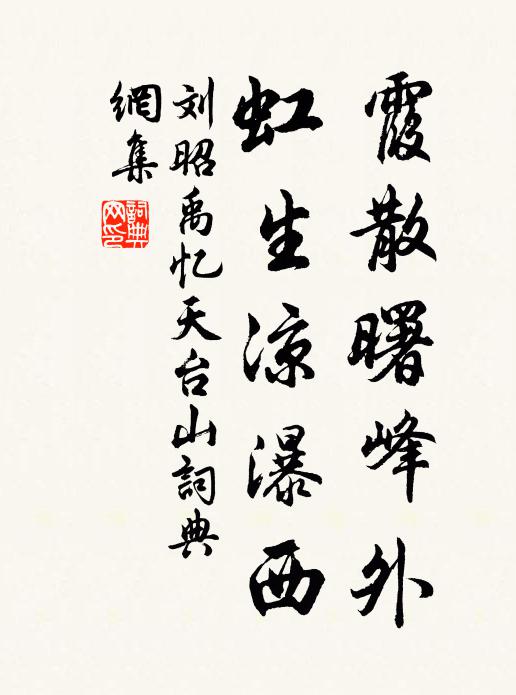 霞散曙峰外
虹生凉瀑西
刘昭禹忆天台山詞典
網集
詞典網印